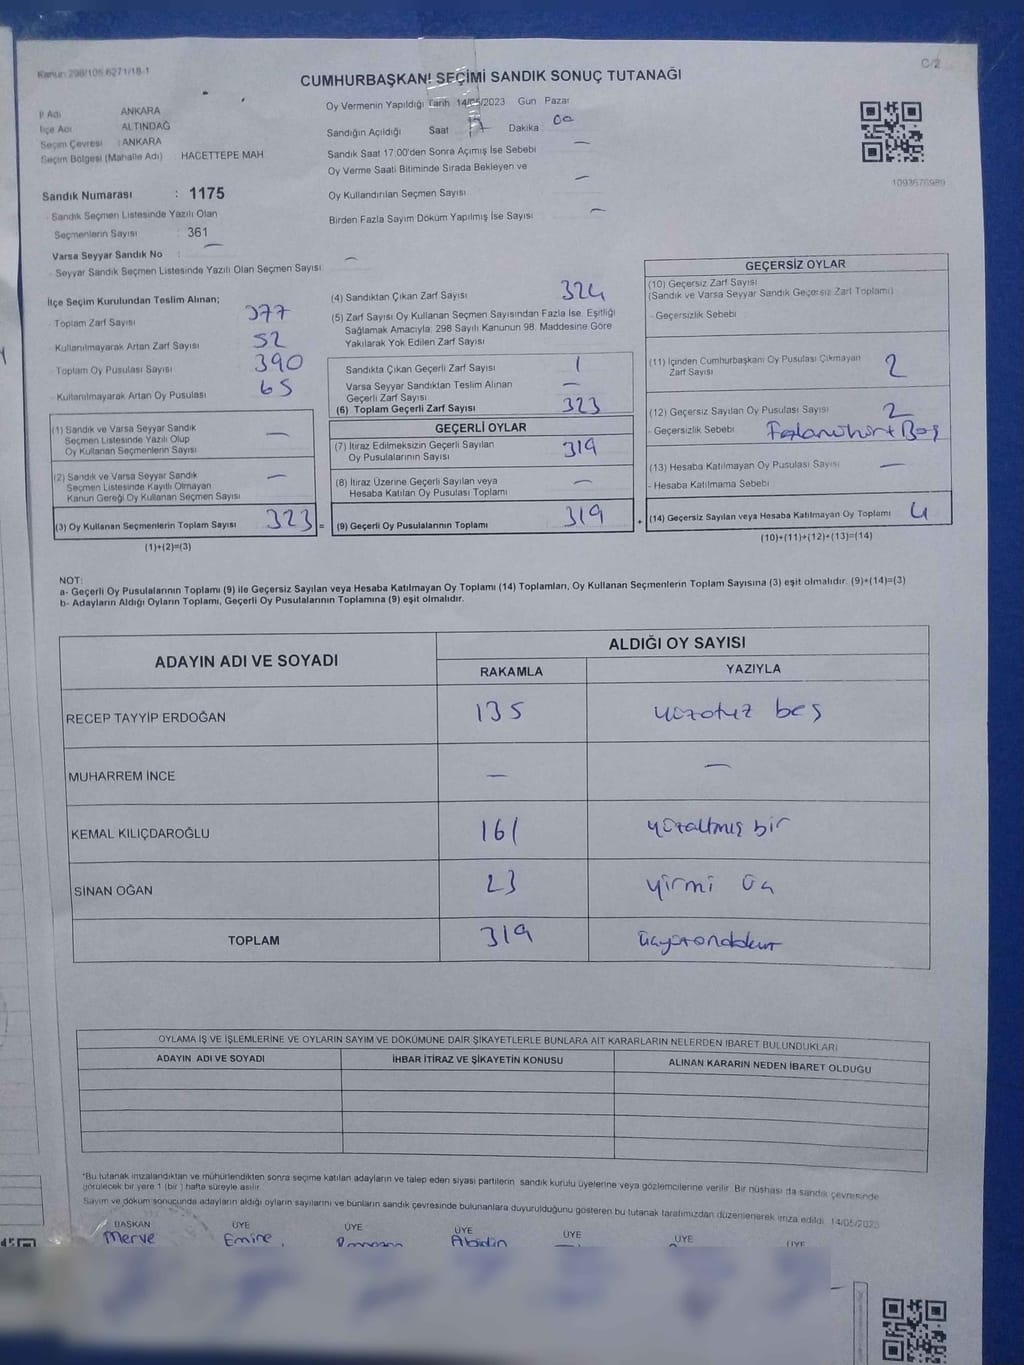 Kanun 298/105 6271/18-1
C/2
CUMHURBAŞKANI SEÇİMİ SANDIK SONUÇ TUTANAĞI
İl Adı ANKARA
İlçe Adı ALTINDAĞ
Seçim Çevresi : ANKARA
Seçim Bölgesi (Mahalle Adı) HACETTEPE MAH
Oy Vermenin Yapıldığı Tarih 14/05/2023 Gün Pazar
Sandığın Açıldığı Saat 17 Dakika 00
Sandık Saat 17:00'den Sonra Açımış İse Sebebi —
Oy Verme Saati Bitiminde Sırada Bekleyen ve
Oy Kullandırılan Seçmen Sayısı —
Birden Fazla Sayım Döküm Yapılmış İse Sayısı —
1093676989
Sandık Numarası : 1175
- Sandık Seçmen Listesinde Yazılı Olan
Seçmenlerin Sayısı : 361
Varsa Seyyar Sandık No : —
- Seyyar Sandık Seçmen Listesinde Yazılı Olan Seçmen Sayısı: —
İlçe Seçim Kurulundan Teslim Alınan;
- Toplam Zarf Sayısı 377
- Kullanılmayarak Artan Zarf Sayısı 52
- Toplam Oy Pusulası Sayısı 390
- Kullanılmayarak Artan Oy Pusulası 65
(1) Sandık ve Varsa Seyyar Sandık
Seçmen Listesinde Yazılı Olup
Oy Kullanan Seçmenlerin Sayısı —
(2) Sandık ve Varsa Seyyar Sandık
Seçmen Listesinde Kayıtlı Olmayan
Kanun Gereği Oy Kullanan Seçmen Sayısı —
(3) Oy Kullanan Seçmenlerin Toplam Sayısı 323 =
(1)+(2)=(3)
(4) Sandıktan Çıkan Zarf Sayısı 324
(5) Zarf Sayısı Oy Kullanan Seçmen Sayısından Fazla İse, Eşitliği
Sağlamak Amacıyla; 298 Sayılı Kanunun 98. Maddesine Göre
Yakılarak Yok Edilen Zarf Sayısı
Sandıkta Çıkan Geçerli Zarf Sayısı 1
Varsa Seyyar Sandıktan Teslim Alınan
Geçerli Zarf Sayısı —
(6) Toplam Geçerli Zarf Sayısı 323
GEÇERLİ OYLAR
(7) İtiraz Edilmeksizin Geçerli Sayılan
Oy Pusulalarının Sayısı 319
(8) İtiraz Üzerine Geçerli Sayılan veya
Hesaba Katılan Oy Pusulası Toplamı —
(9) Geçerli Oy Pusulalarının Toplamı 319 +
GEÇERSİZ OYLAR
(10) Geçersiz Zarf Sayısı
(Sandık ve Varsa Seyyar Sandık Geçersiz Zarf Toplamı)
- Geçersizlik Sebebi
(11) İçinden Cumhurbaşkanı Oy Pusulası Çıkmayan
Zarf Sayısı 2
(12) Geçersiz Sayılan Oy Pusulası Sayısı 2
- Geçersizlik Sebebi Boş
(13) Hesaba Katılmayan Oy Pusulası Sayısı —
- Hesaba Katılmama Sebebi
(14) Geçersiz Sayılan veya Hesaba Katılmayan Oy Toplamı 4
(10)+(11)+(12)+(13)=(14)
NOT:
a- Geçerli Oy Pusulalarının Toplamı (9) ile Geçersiz Sayılan veya Hesaba Katılmayan Oy Toplamı (14) Toplamları, Oy Kullanan Seçmenlerin Toplam Sayısına (3) eşit olmalıdır. (9)+(14)=(3)
b- Adayların Aldığı Oyların Toplamı, Geçerli Oy Pusulalarının Toplamına (9) eşit olmalıdır.
ADAYIN ADI VE SOYADI
ALDIĞI OY SAYISI
RAKAMLA YAZIYLA
RECEP TAYYİP ERDOĞAN 135 yüzotuz beş
MUHARREM İNCE — —
KEMAL KILIÇDAROĞLU 161 yüzaltmış bir
SİNAN OĞAN 23 yirmi üç
TOPLAM 319 üçyüzondokuz
OYLAMA İŞ VE İŞLEMLERİNE VE OYLARIN SAYIM VE DÖKÜMÜNE DAİR ŞİKAYETLERLE BUNLARA AİT KARARLARIN NELERDEN İBARET BULUNDUKLARI
ADAYIN ADI VE SOYADI İHBAR İTİRAZ VE ŞİKAYETİN KONUSU ALINAN KARARIN NEDEN İBARET OLDUĞU
*Bu tutanak imzalandıktan ve mühürlendikten sonra seçime katılan adayların ve talep eden siyasi partilerin sandık kurulu üyelerine veya gözlemcilerine verilir. Bir nüshası da sandık çevresinde
görülecek bir yere 1 (bir ) hafta süreyle asılır.
Sayım ve döküm sonucunda adayların aldığı oyların sayılarını ve bunların sandık çevresinde bulunanlara duyurulduğunu gösteren bu tutanak tarafımızdan düzenlenerek imza edildi. 14/05/2023
BAŞKAN ÜYE ÜYE ÜYE ÜYE ÜYE ÜYE
Merve Emine Abidin